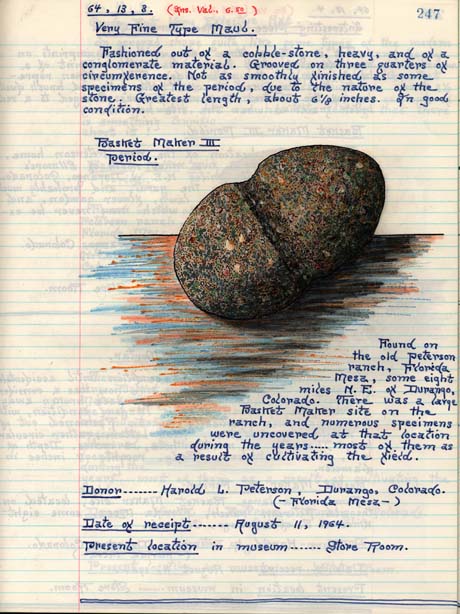 64, 13, 8. (Ins. Val., 6.50)
247
Very Fine Type Maul.
Fashioned out of a cobble-stone, heavy, and of a
conglomerate material. Grooved on three quarters of
circumference. Not as smoothly finished as some
specimens of the period, due to the nature of the
stone. Greatest length, about 6 1/8 inches. In good
condition.
Basket Maker III
period.
Found on
the old Peterson
ranch, Florida
Mesa, some eight
miles N.E. of Durango,
Colorado. There was a large
Basket Maker site on the
ranch, and numerous specimens
were uncovered at that location
during the years.... most of them as
a result of cultivating the field.
Donor------- Harold L. Peterson, Durango, Colorado.
(-Florida Mesa-)
Date of receipt------- August 11, 1964.
Present location in museum------ Store Room.